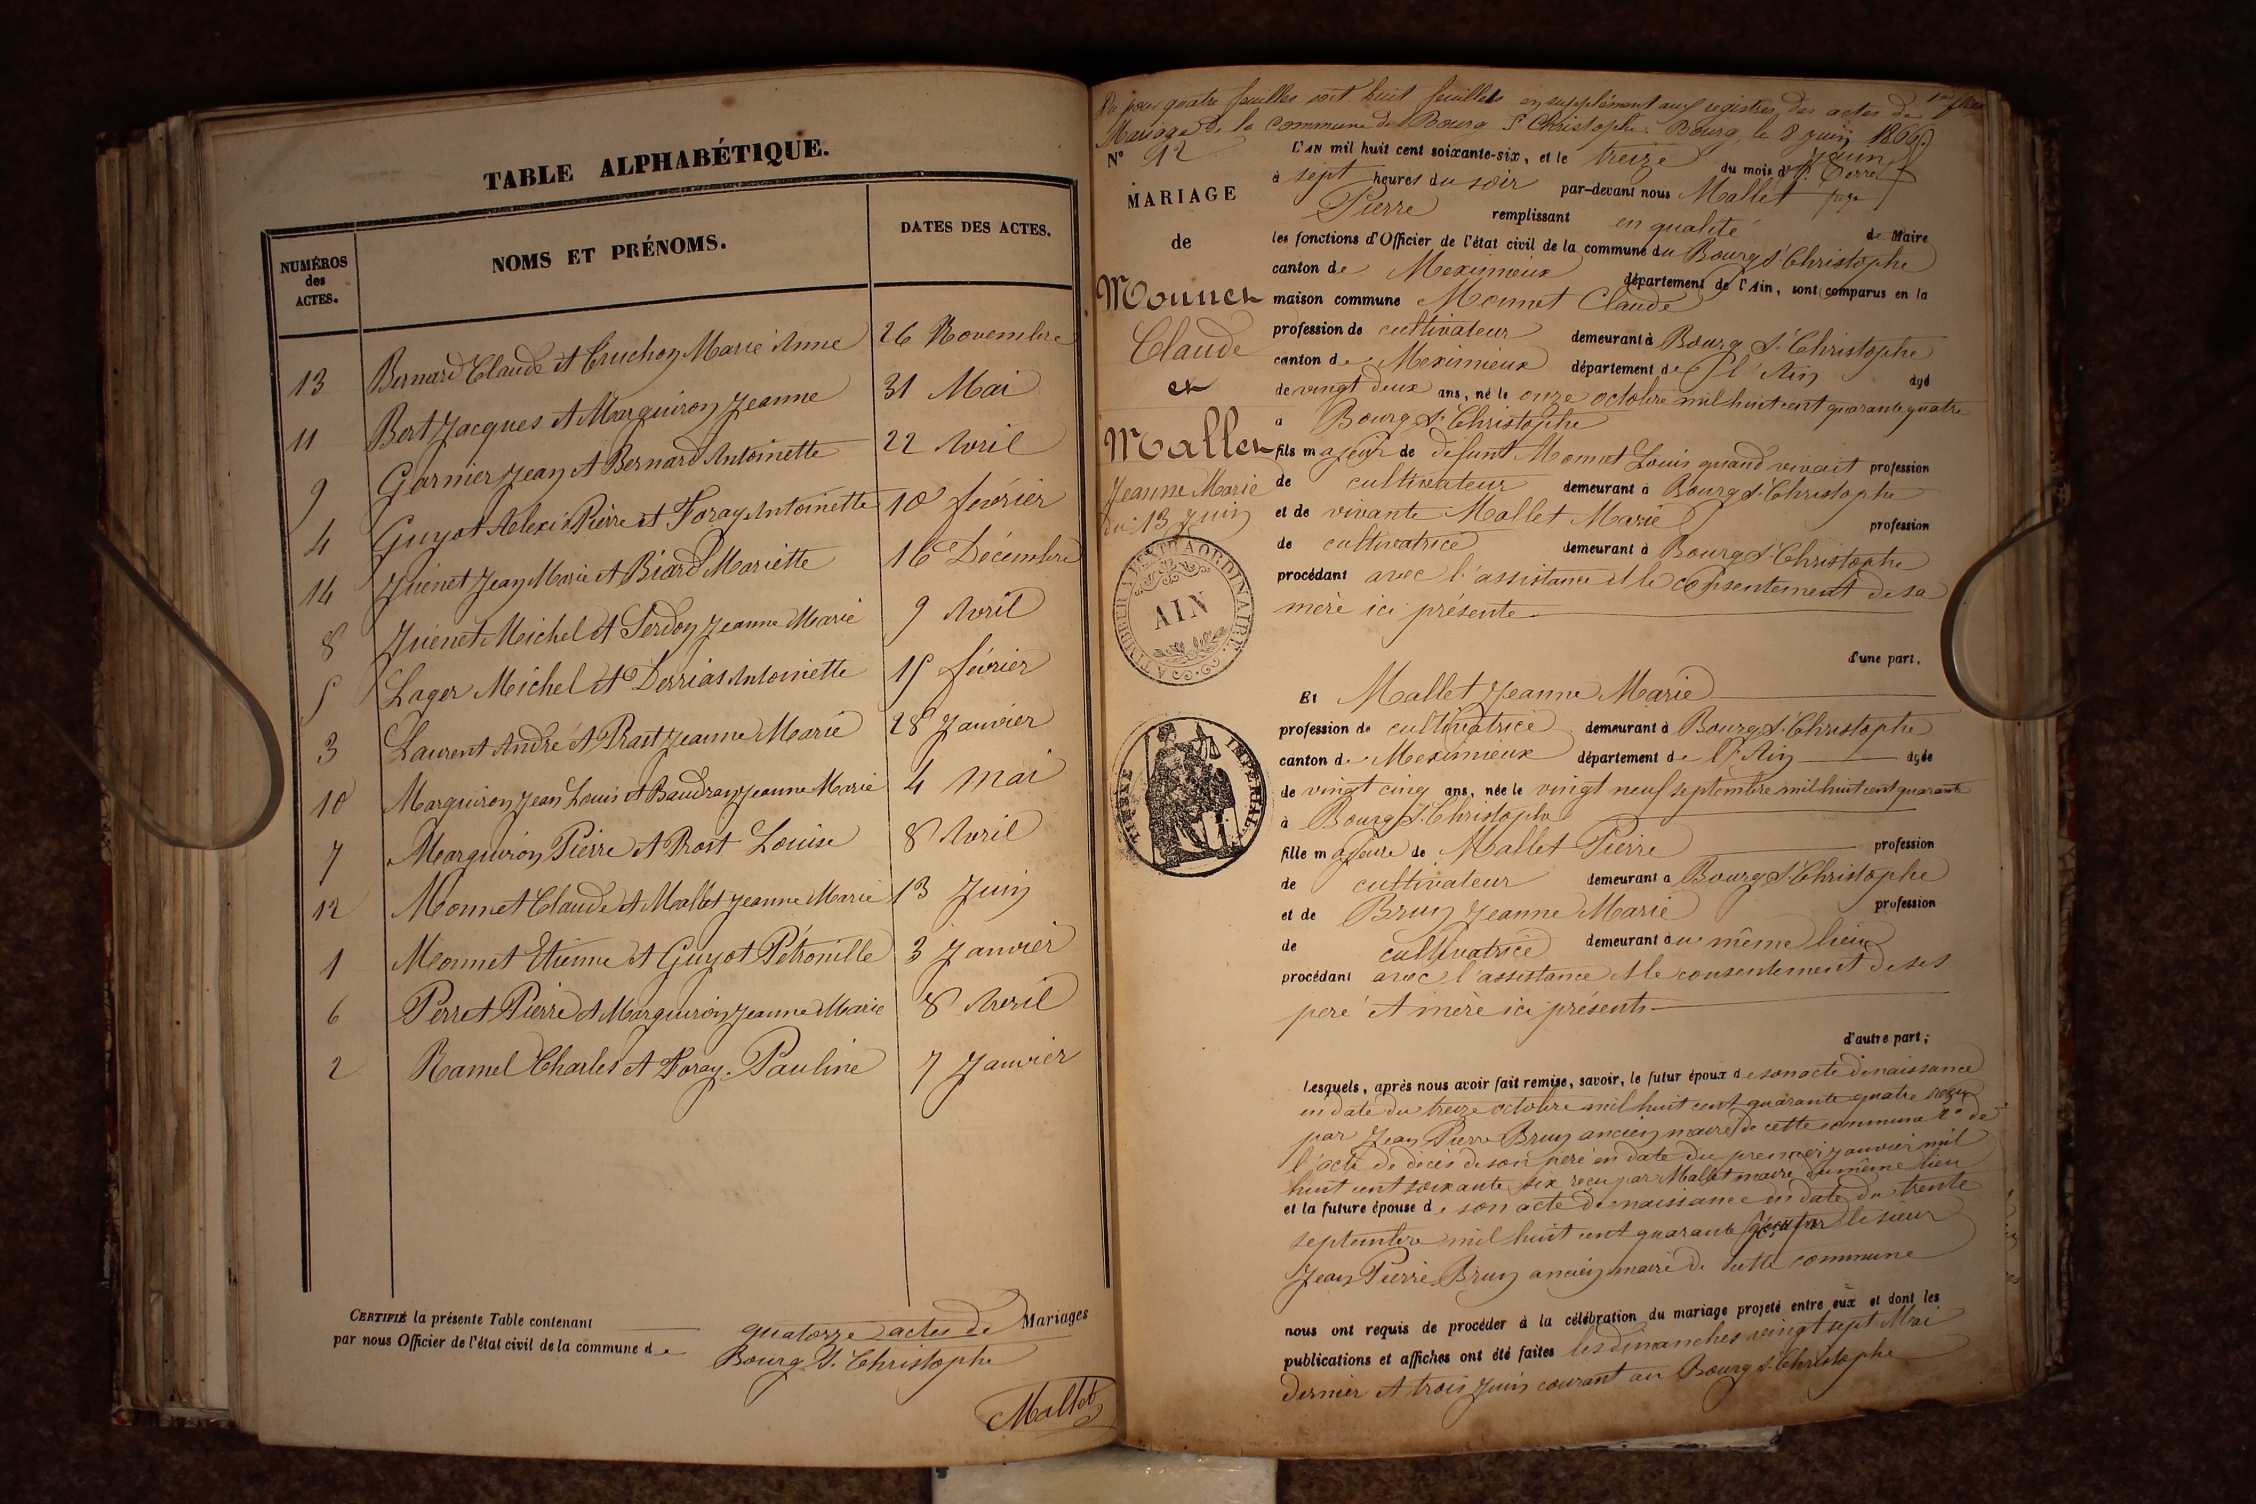 TABLE ALPHABÉTIQUE.
NUMÉROS des ACTES.
NOMS ET PRÉNOMS.
DATES DES ACTES.
13 Bernard Claude et Cruchon Marie Anne 26 Novembre
11 Bert Jacques et Marguiron Jeanne 31 Mai
9 Garnier Jean et Bernard Antoinette 22 Avril
4 Guyot Alexis Pierre et Foray Antoinette 10 février
14 Juenet Jean Marie et Biard Mariette 16 Décembre
8 Juenet Michel et Serdon Jeanne Marie 9 Avril
5 Lager Michel et Derrias Antoinette 15 février
3 Laurent André et Prast Jeanne Marie 28 Janvier
10 Marguiron Jean Louis et Baudran Jeanne Marie 4 Mai
7 Marguiron Pierre et Prost Louise 8 Avril
12 Monnet Claude et Mallet Jeanne Marie 13 Juin
1 Monnet Etienne et Guyot Pétronille 3 Janvier
6 Perret Pierre et Marguiron Jeanne Marie 8 Avril
2 Ramel Charles et Foray Pauline 7 Janvier
CERTIFIÉ la présente Table contenant quatorze actes de Mariages
par nous Officier de l'état civil de la commune de Bourg St Christophe
Mallet
pour quatre feuilles soit huit feuillets en supplément aux registres des actes de
Mariage de la commune de Bourg St Christophe. Bourg, le 8 juin 1866
N° 12
MARIAGE
de
Monnet
Claude
et
Mallet
Jeanne Marie
du 13 Juin
TIMBRE A L'EXTRAORDINAIRE
AIN
TIMBRE IMPÉRIAL
L'AN mil huit cent soixante-six, et le treize du mois de Juin
à sept heures du soir par-devant nous Mallet
Pierre remplissant en qualité de Maire
les fonctions d'Officier de l'état civil de la commune du Bourg St Christophe
canton de Meximieux département de l'Ain, sont comparus en la
maison commune Monnet Claude
profession de cultivateur demeurant à Bourg St Christophe
canton de Meximieux département de l'Ain âgé
de vingt deux ans, né le onze octobre mil huit cent quarante quatre
à Bourg St Christophe
fils majeur de défunt Monnet Louis quand vivait profession
de cultivateur demeurant à Bourg St Christophe
et de vivante Mallet Marie profession
de cultivatrice demeurant à Bourg St Christophe
procédant avec l'assistance et le consentement de sa
mère ici présente
d'une part.
Et Mallet Jeanne Marie
profession de cultivatrice demeurant à Bourg St Christophe
canton de Meximieux département de l'Ain âgée
de vingt cinq ans, née le vingt neuf septembre mil huit cent quarante
à Bourg St Christophe
fille majeure de Mallet Pierre profession
de cultivateur demeurant à Bourg St Christophe
et de Brun Jeanne Marie profession
de cultivatrice demeurant au même lieu
procédant avec l'assistance et le consentement de ses
père et mère ici présents
d'autre part;
Lesquels, après nous avoir fait remise, savoir, le futur époux de son acte de naissance
en date du treize octobre mil huit cent quarante quatre reçu
par Jean Pierre Brun ancien maire de cette commune 2° de
l'acte de décès de son père en date du premier janvier mil
huit cent soixante six reçu par Mallet maire du même lieu
et la future épouse de son acte de naissance en date du trente
septembre mil huit cent quarante reçu par le sieur
Jean Pierre Brun ancien maire de cette commune
nous ont requis de procéder à la célébration du mariage projeté entre eux et dont les
publications et affiches ont été faites les dimanches vingt sept Mai
dernier et trois Juin courant au Bourg St Christophe